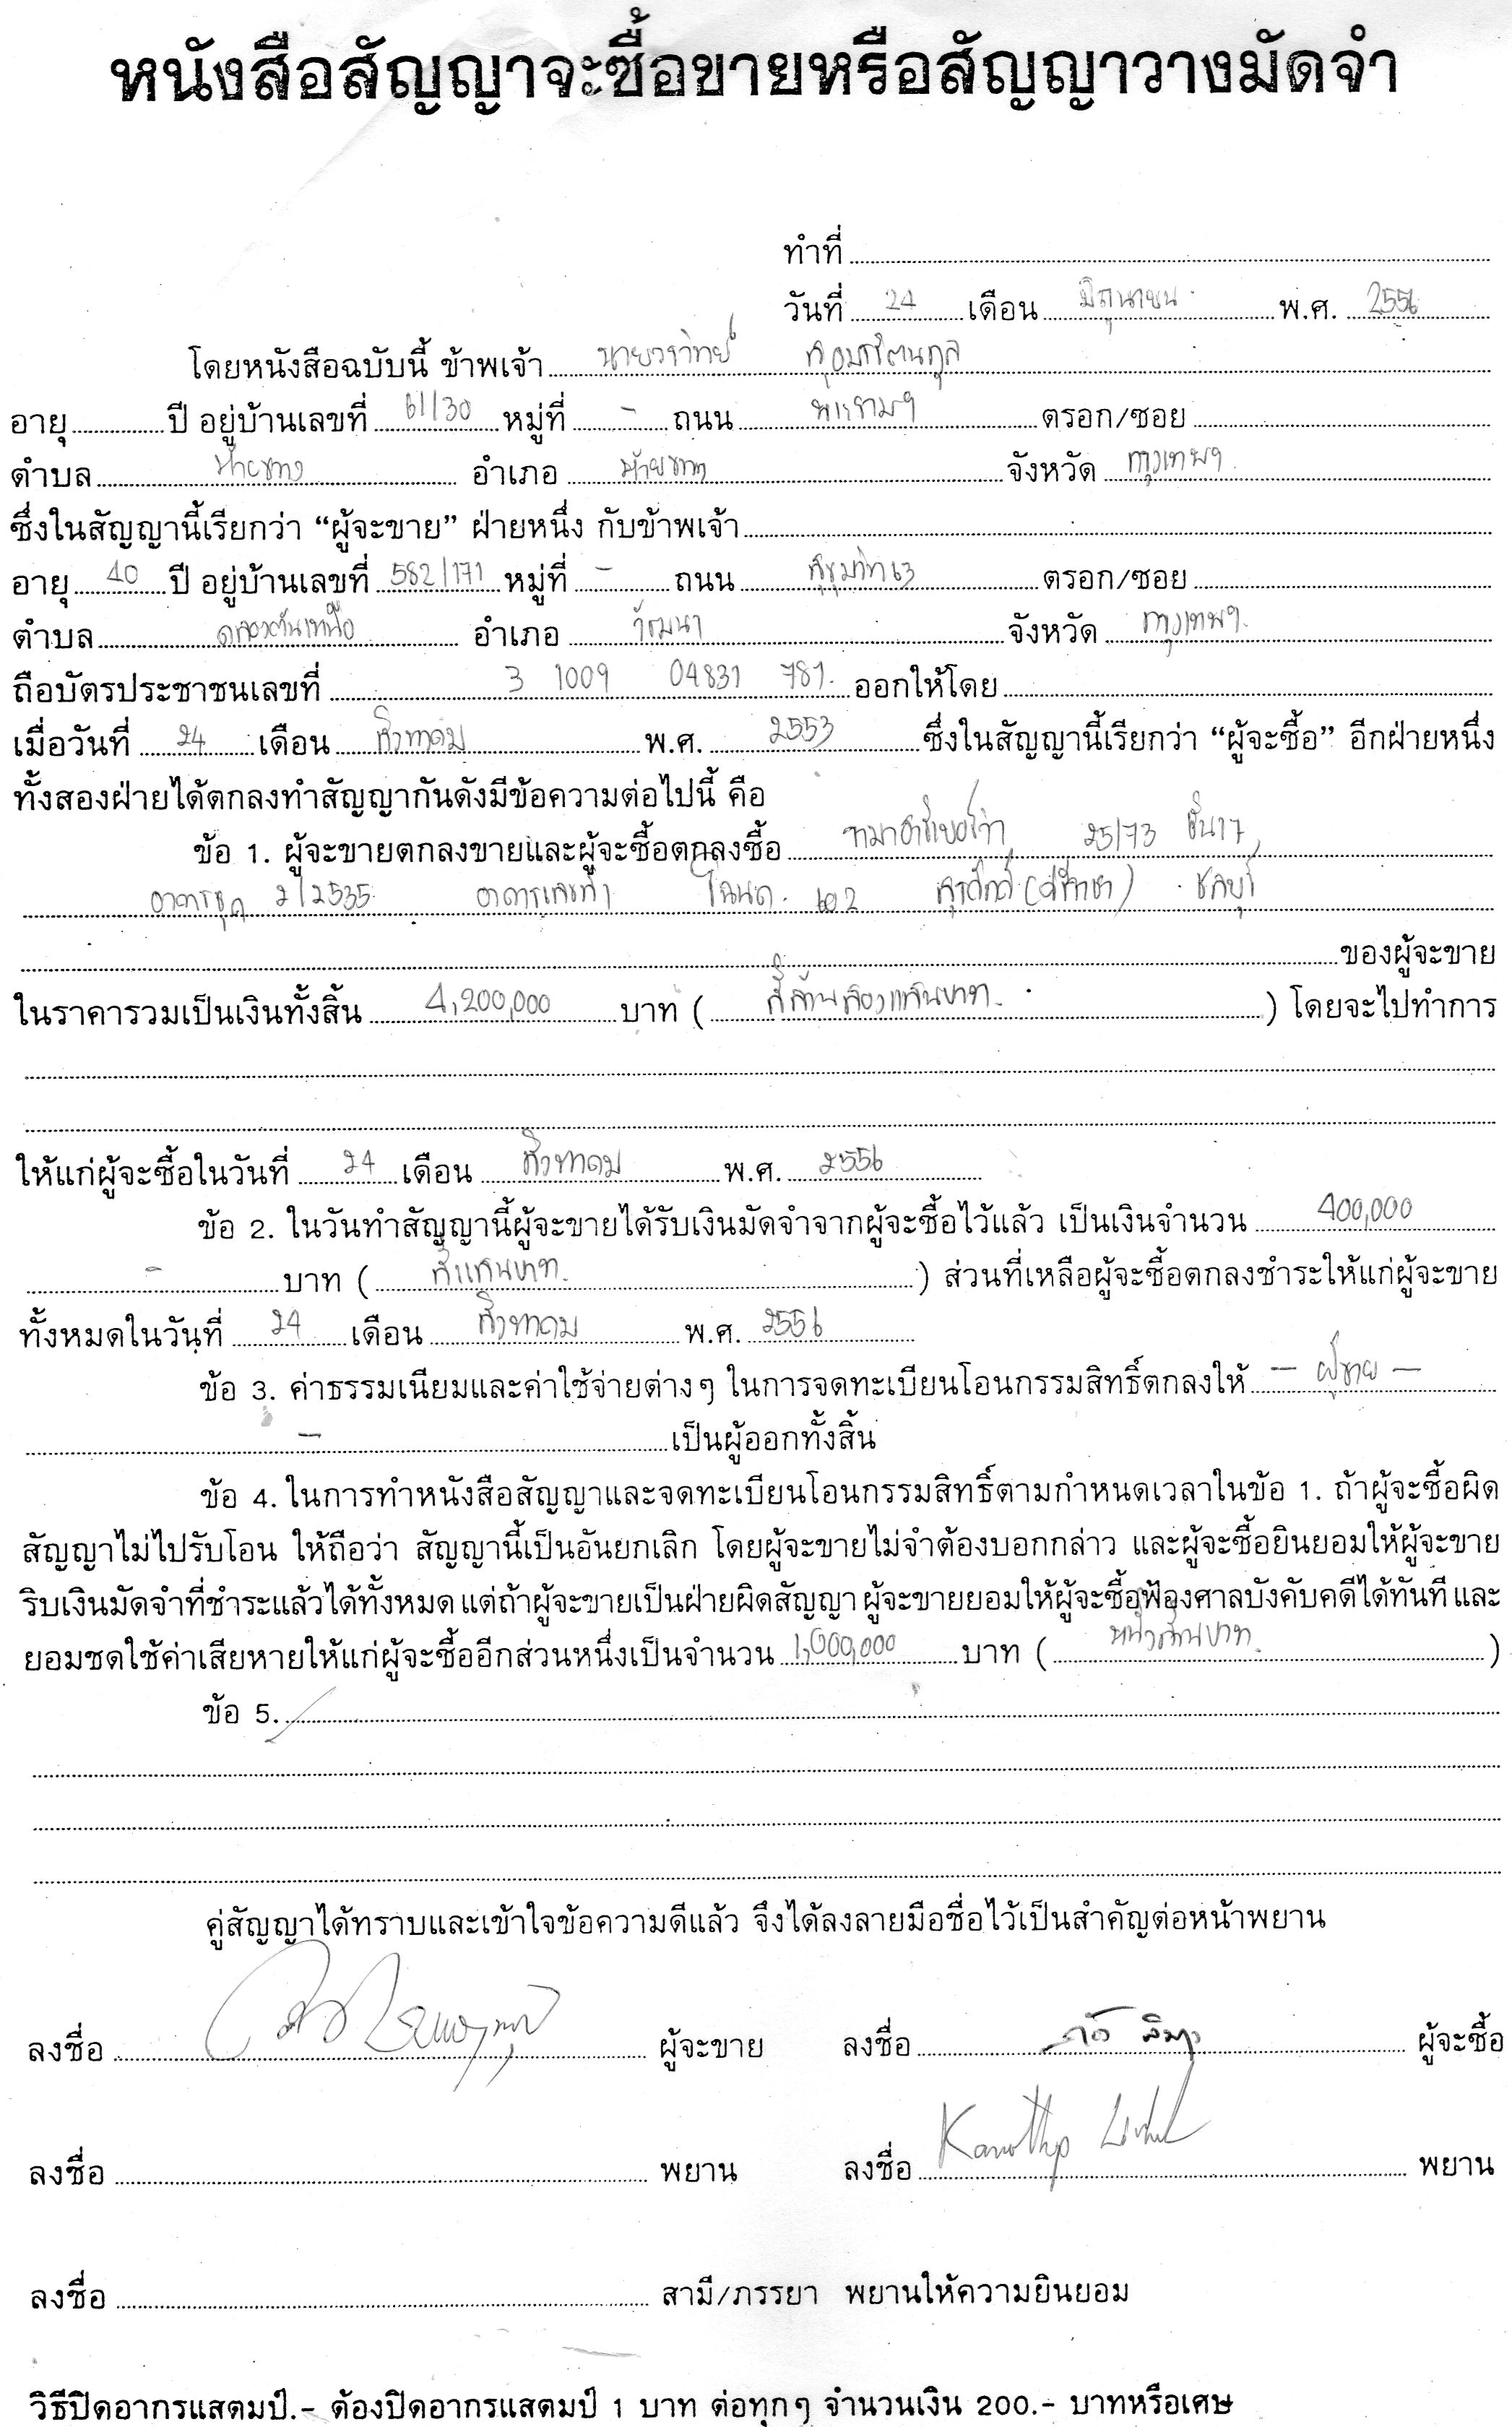 หนังสือสัญญาจะซื้อขายหรือสัญญาวางมัดจำ
ทำที่
วันที่ 24 เดือน มิถุนายน พ.ศ. 2556
โดยหนังสือฉบับนี้ ข้าพเจ้า นายวราวิทย์
อายุ ปี อยู่บ้านเลขที่ 61/30 หมู่ที่ - ถนน พระราม 9 ตรอก/ซอย
ตำบล ห้วยขวาง อำเภอ ห้วยขวาง จังหวัด กรุงเทพฯ
ซึ่งในสัญญานี้เรียกว่า “ผู้จะขาย” ฝ่ายหนึ่ง กับข้าพเจ้า
อายุ 40 ปี อยู่บ้านเลขที่ 582/171 หมู่ที่ - ถนน สุขุมวิท 63 ตรอก/ซอย
ตำบล คลองตันเหนือ อำเภอ วัฒนา จังหวัด กรุงเทพฯ
ถือบัตรประชาชนเลขที่ 3 1009 04831 781. ออกให้โดย
เมื่อวันที่ 24 เดือน สิงหาคม พ.ศ. 2553 ซึ่งในสัญญานี้เรียกว่า “ผู้จะซื้อ” อีกฝ่ายหนึ่ง
ทั้งสองฝ่ายได้ตกลงทำสัญญากันดังมีข้อความต่อไปนี้ คือ
ข้อ 1. ผู้จะขายตกลงขายและผู้จะซื้อตกลงซื้อ 25/73 ชั้น 17
อาคารชุด 2/2535 อาคารเลขที่ 1 โฉนด. 602 สุรศักดิ์ (ศรีราชา) ชลบุรี
ของผู้จะขาย
ในราคารวมเป็นเงินทั้งสิ้น 4,200,000 บาท ( สี่ล้านสองแสนบาท. ) โดยจะไปทำการ
ให้แก่ผู้จะซื้อในวันที่ 24 เดือน สิงหาคม พ.ศ. 2556
ข้อ 2. ในวันทำสัญญานี้ผู้จะขายได้รับเงินมัดจำจากผู้จะซื้อไว้แล้ว เป็นเงินจำนวน 400,000
- บาท ( สี่แสนบาท. ) ส่วนที่เหลือผู้จะซื้อตกลงชำระให้แก่ผู้จะขาย
ทั้งหมดในวันที่ 24 เดือน สิงหาคม พ.ศ. 2556
ข้อ 3. ค่าธรรมเนียมและค่าใช้จ่ายต่างๆ ในการจดทะเบียนโอนกรรมสิทธิ์ตกลงให้ - ผู้ขาย -
- เป็นผู้ออกทั้งสิ้น
ข้อ 4. ในการทำหนังสือสัญญาและจดทะเบียนโอนกรรมสิทธิ์ตามกำหนดเวลาในข้อ 1. ถ้าผู้จะซื้อผิด
สัญญาไม่ไปรับโอน ให้ถือว่า สัญญานี้เป็นอันยกเลิก โดยผู้จะขายไม่จำต้องบอกกล่าว และผู้จะซื้อยินยอมให้ผู้จะขาย
ริบเงินมัดจำที่ชำระแล้วได้ทั้งหมด แต่ถ้าผู้จะขายเป็นฝ่ายผิดสัญญา ผู้จะขายยอมให้ผู้จะซื้อฟ้องศาลบังคับคดีได้ทันที และ
ยอมชดใช้ค่าเสียหายให้แก่ผู้จะซื้ออีกส่วนหนึ่งเป็นจำนวน 1,000,000 บาท ( หนึ่งล้านบาท. )
ข้อ 5.
คู่สัญญาได้ทราบและเข้าใจข้อความดีแล้ว จึงได้ลงลายมือชื่อไว้เป็นสำคัญต่อหน้าพยาน
ลงชื่อ ผู้จะขาย ลงชื่อ ผู้จะซื้อ
ลงชื่อ พยาน ลงชื่อ พยาน
ลงชื่อ สามี/ภรรยา พยานให้ความยินยอม
วิธีปิดอากรแสตมป์.- ต้องปิดอากรแสตมป์ 1 บาท ต่อทุกๆ จำนวนเงิน 200.- บาทหรือเศษ